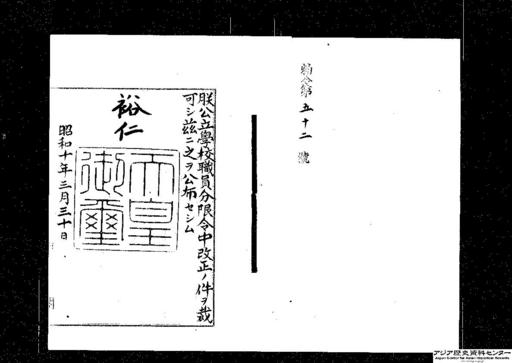 勅令第五十二號
朕公立學校職員分限令中改正ノ件ヲ裁
可シ茲ニ之ヲ公布セシム
裕仁
天皇
御璽
昭和十年三月三十日
アジア歴史資料センター
Japan Center for Asian Historical Records